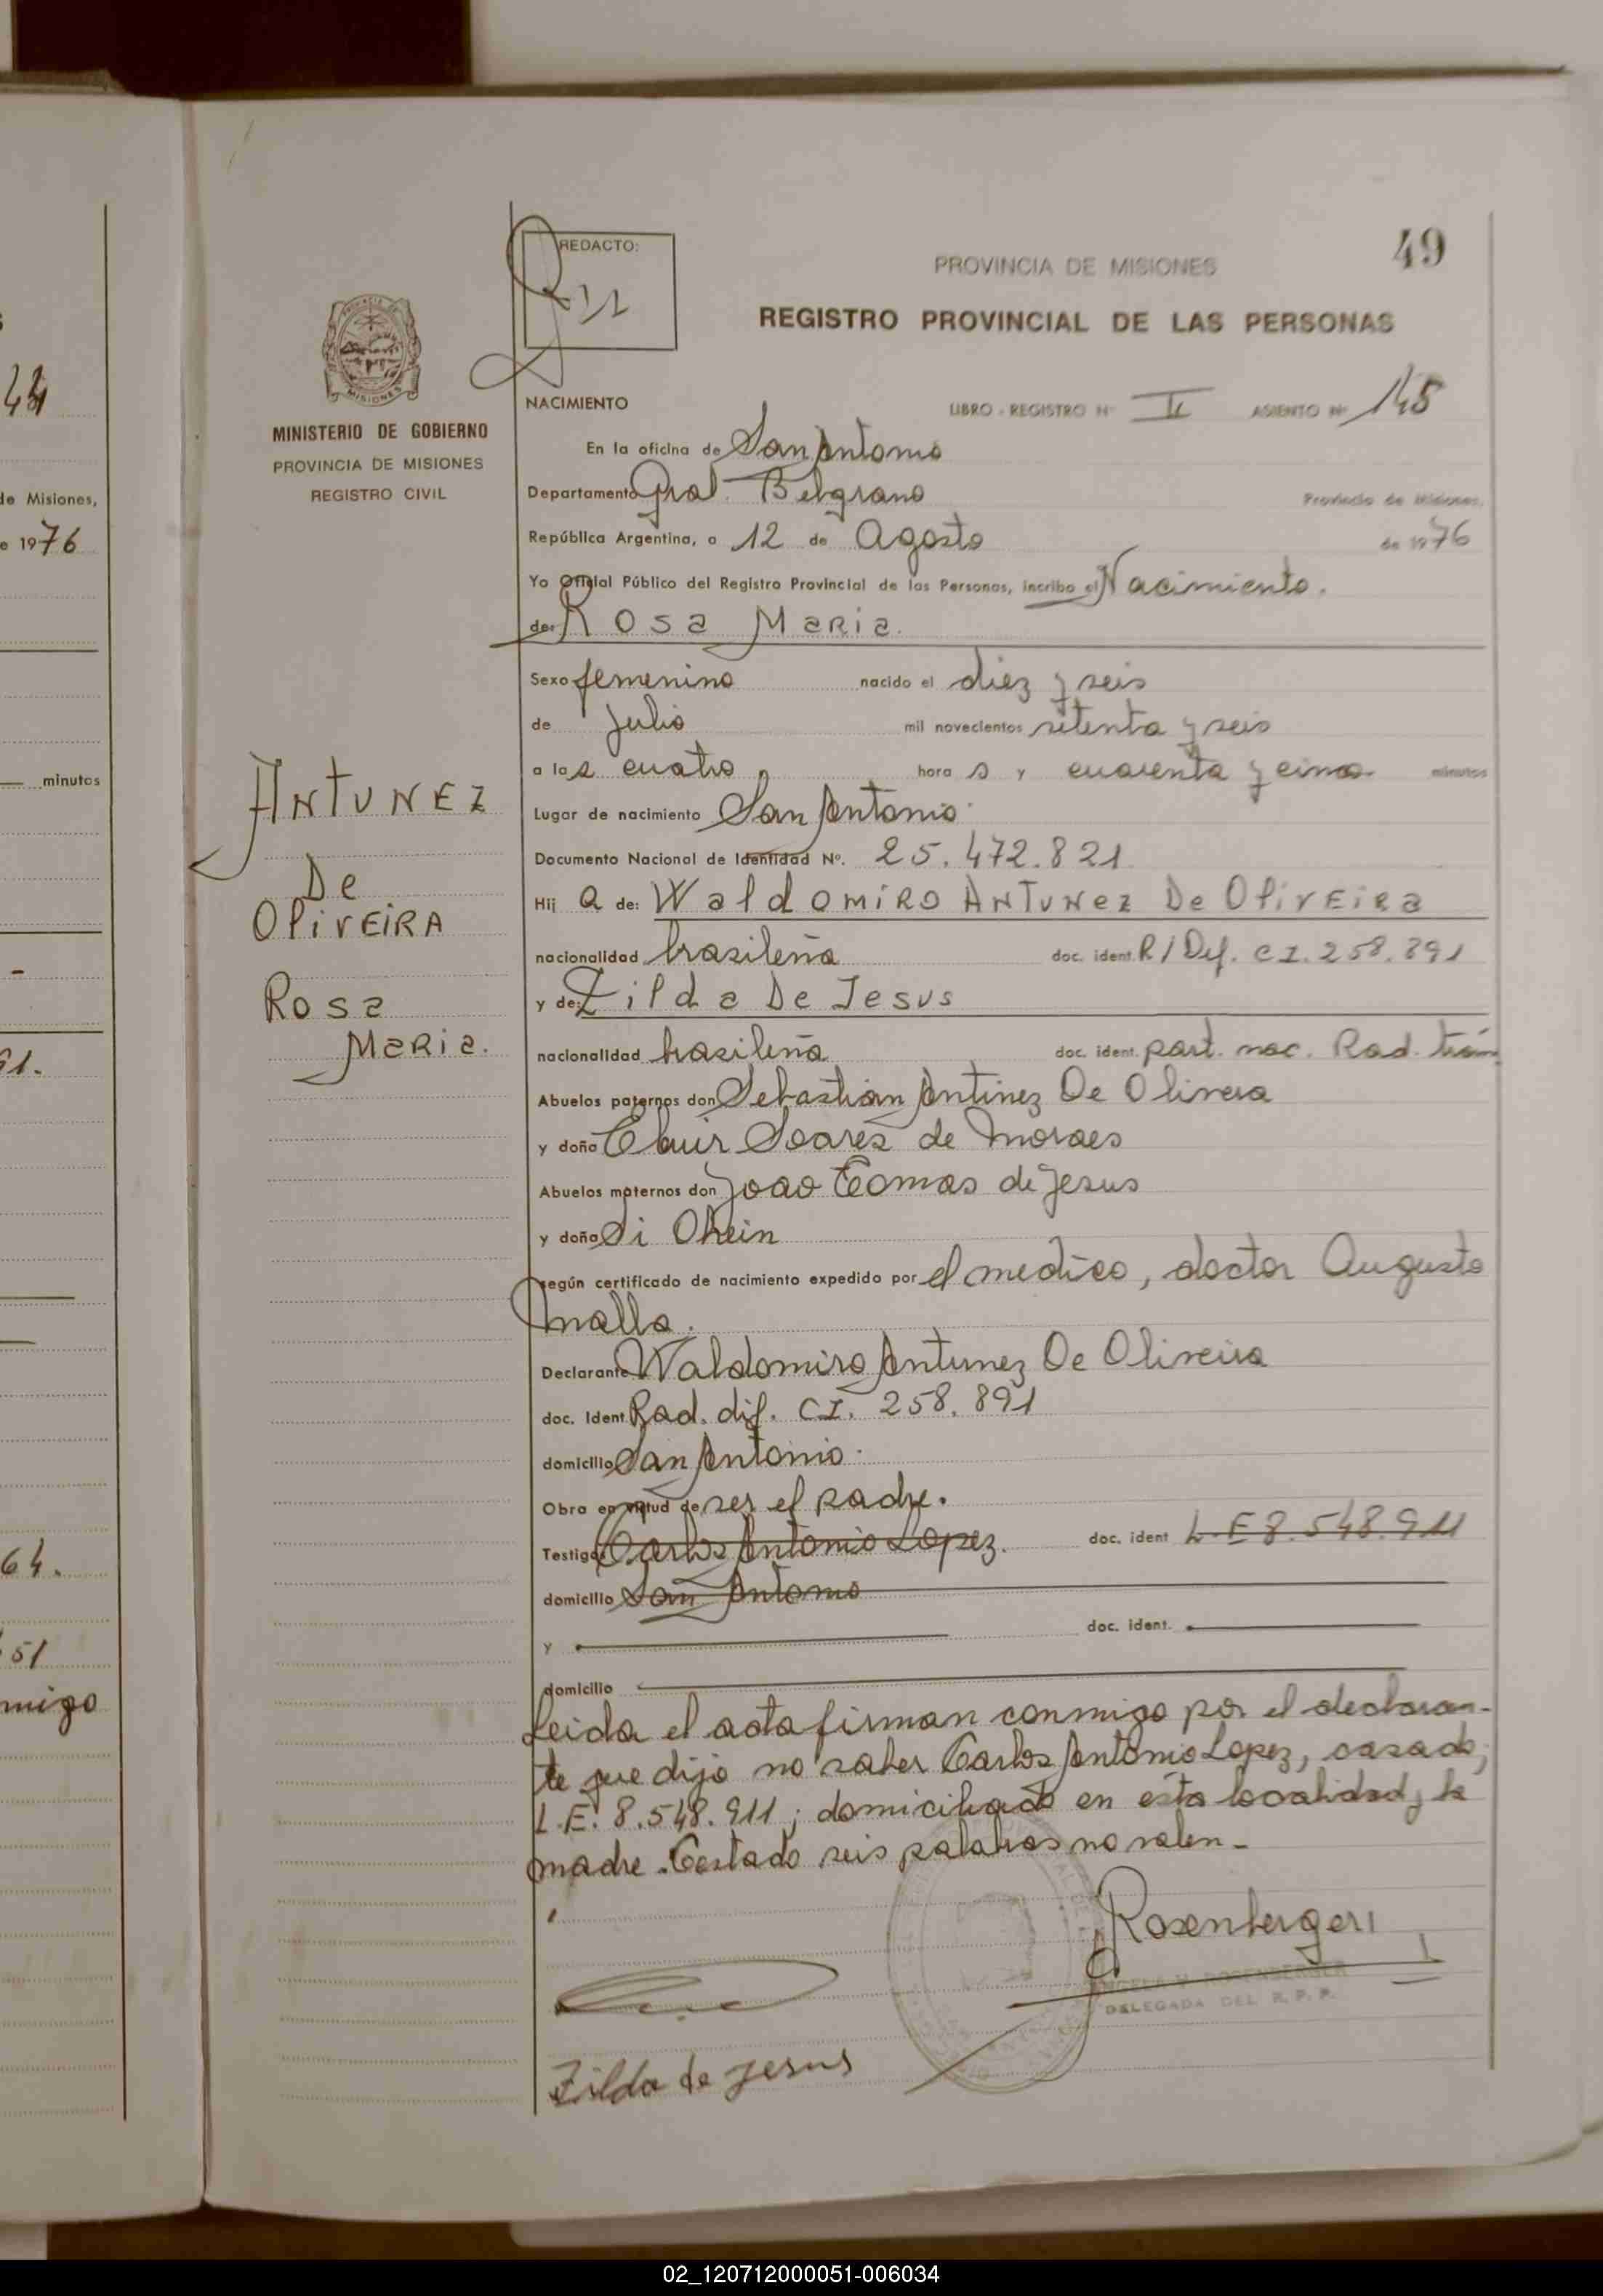 44
de Misiones,
e 1976
minutos
91.
64.
51
migo
49
REDACTO:
PROVINCIA DE MISIONES
REGISTRO PROVINCIAL DE LAS PERSONAS
MINISTERIO DE GOBIERNO
PROVINCIA DE MISIONES
REGISTRO CIVIL
ANTUNEZ
De
OliVEIRA
Rosa
Maria.
NACIMIENTO LIBRO - REGISTRO Nº II ASIENTO Nº 145
En la oficina de San Antonio
Departamento Gral. Belgrano Provincia de Misiones,
República Argentina, a 12 de Agosto de 1976
Yo Oficial Público del Registro Provincial de las Personas, incribo el Nacimiento.
de: Rosa Maria.
Sexo femenino nacido el diez y seis
de Julio mil novecientos setenta y seis
a las cuatro hora s y cuarenta y cinco minutos
Lugar de nacimiento San Antonio
Documento Nacional de Identidad Nº. 25.472.821
Hij a de: Waldomiro Antunez De Oliveira
nacionalidad brasileña doc. ident. R/Dif. C.I. 258.891
y de: Zilda De Jesus
nacionalidad brasileña doc. ident. part. nac. Rad. trám
Abuelos paternos don Sebastián Antinez De Olivera
y doña Soares de Moraes
Abuelos maternos don Joao Tomas de Jesus
y doña
según certificado de nacimiento expedido por el medico, doctor Augusto
Malla.
Declarante Waldomiro Antunez De Oliveira
doc. Ident. Rad. dif. C.I. 258.891
domicilio San Antonio
Obra en virtud de ser el padre.
Testigos Carlos Antonio Lopez. doc. ident L.E 8.548.911
domicilio San Antonio
y doc. ident.
domicilio
Leida el acta firman conmigo por el declaran-
te que dijo no saber Carlos Antonio Lopez, casado,
L.E. 8.548.911; domiciliado en esta localidad, la
madre. Testado seis palabras no valen.
Rosenberger
ANGELA V. ROSENBERGER
DELEGADA DEL R. P. P.
Zilda de Jesus
02_120712000051-006034